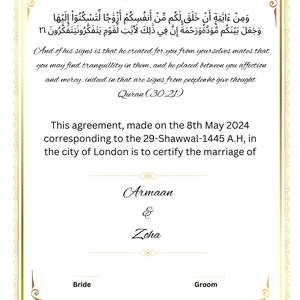 وَمِنْ ءَايَٰتِهِۦٓ أَنْ خَلَقَ لَكُم مِّنْ أَنفُسِكُمْ أَزْوَٰجًا لِّتَسْكُنُوٓا۟ إِلَيْهَا
وَجَعَلَ بَيْنَكُم مَّوَدَّةً وَرَحْمَةً إِنَّ فِى ذَٰلِكَ لَءَايَٰتٍ لِّقَوْمٍ يَتَفَكَّرُونَ ٢١
And of his signs is that he created for you from yourselves mates that
you may find tranquillity in them, and he placed between you affection
and mercy. indeed in that are signs from people who give thought
Quran (30:21)
This agreement, made on the 8th May 2024
corresponding to the 29-Shawwal-1445 A.H, in
the city of London is to certify the marriage of
Armaan
&
Zoha
Bride Groom